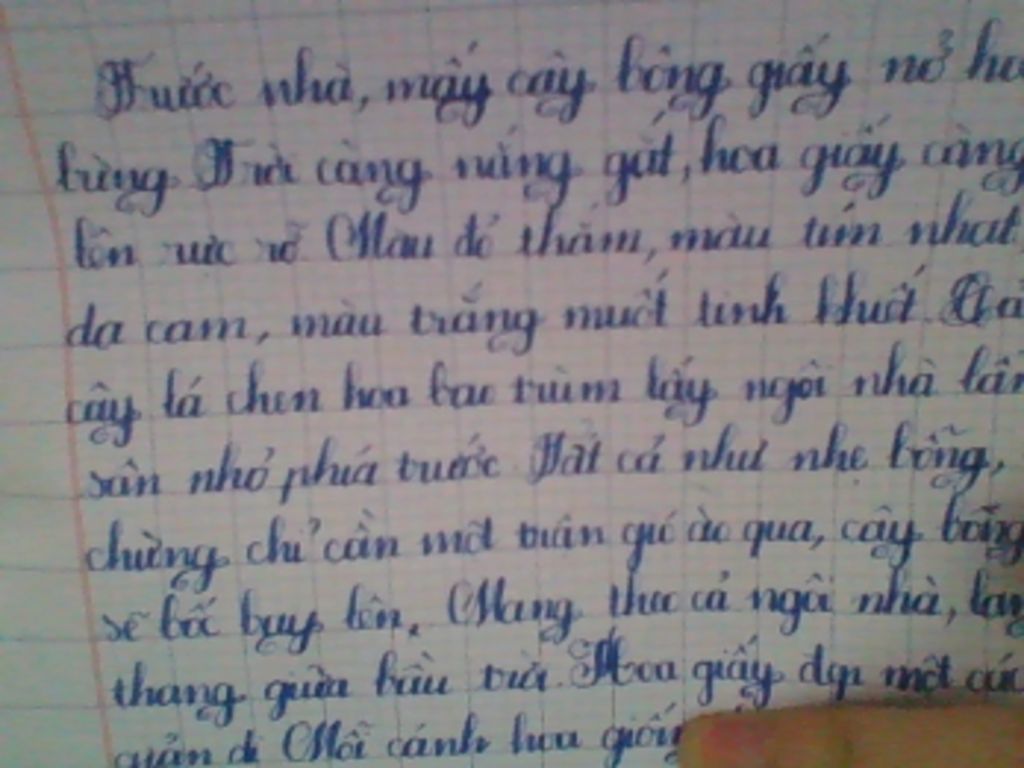 Trước nhà, mấy cây bông giấy nở
bừng. Trời càng nắng gắt, hoa giấy càng
lên rực rỡ. Màu đỏ thắm, màu tím nhạt,
da cam, màu trắng muốt tinh khiết. Cả
cây lá chen hoa bao trùm lấy ngôi nhà lẫn
sân nhỏ phía trước. Tất cả như nhẹ bỗng,
chừng chỉ cần một trận gió ào qua, cây bông
sẽ bốc bay lên. Mang theo cả ngôi nhà, lang
thang giữa bầu trời. Hoa giấy đẹp một cách
giản dị. Mỗi cánh hoa giống